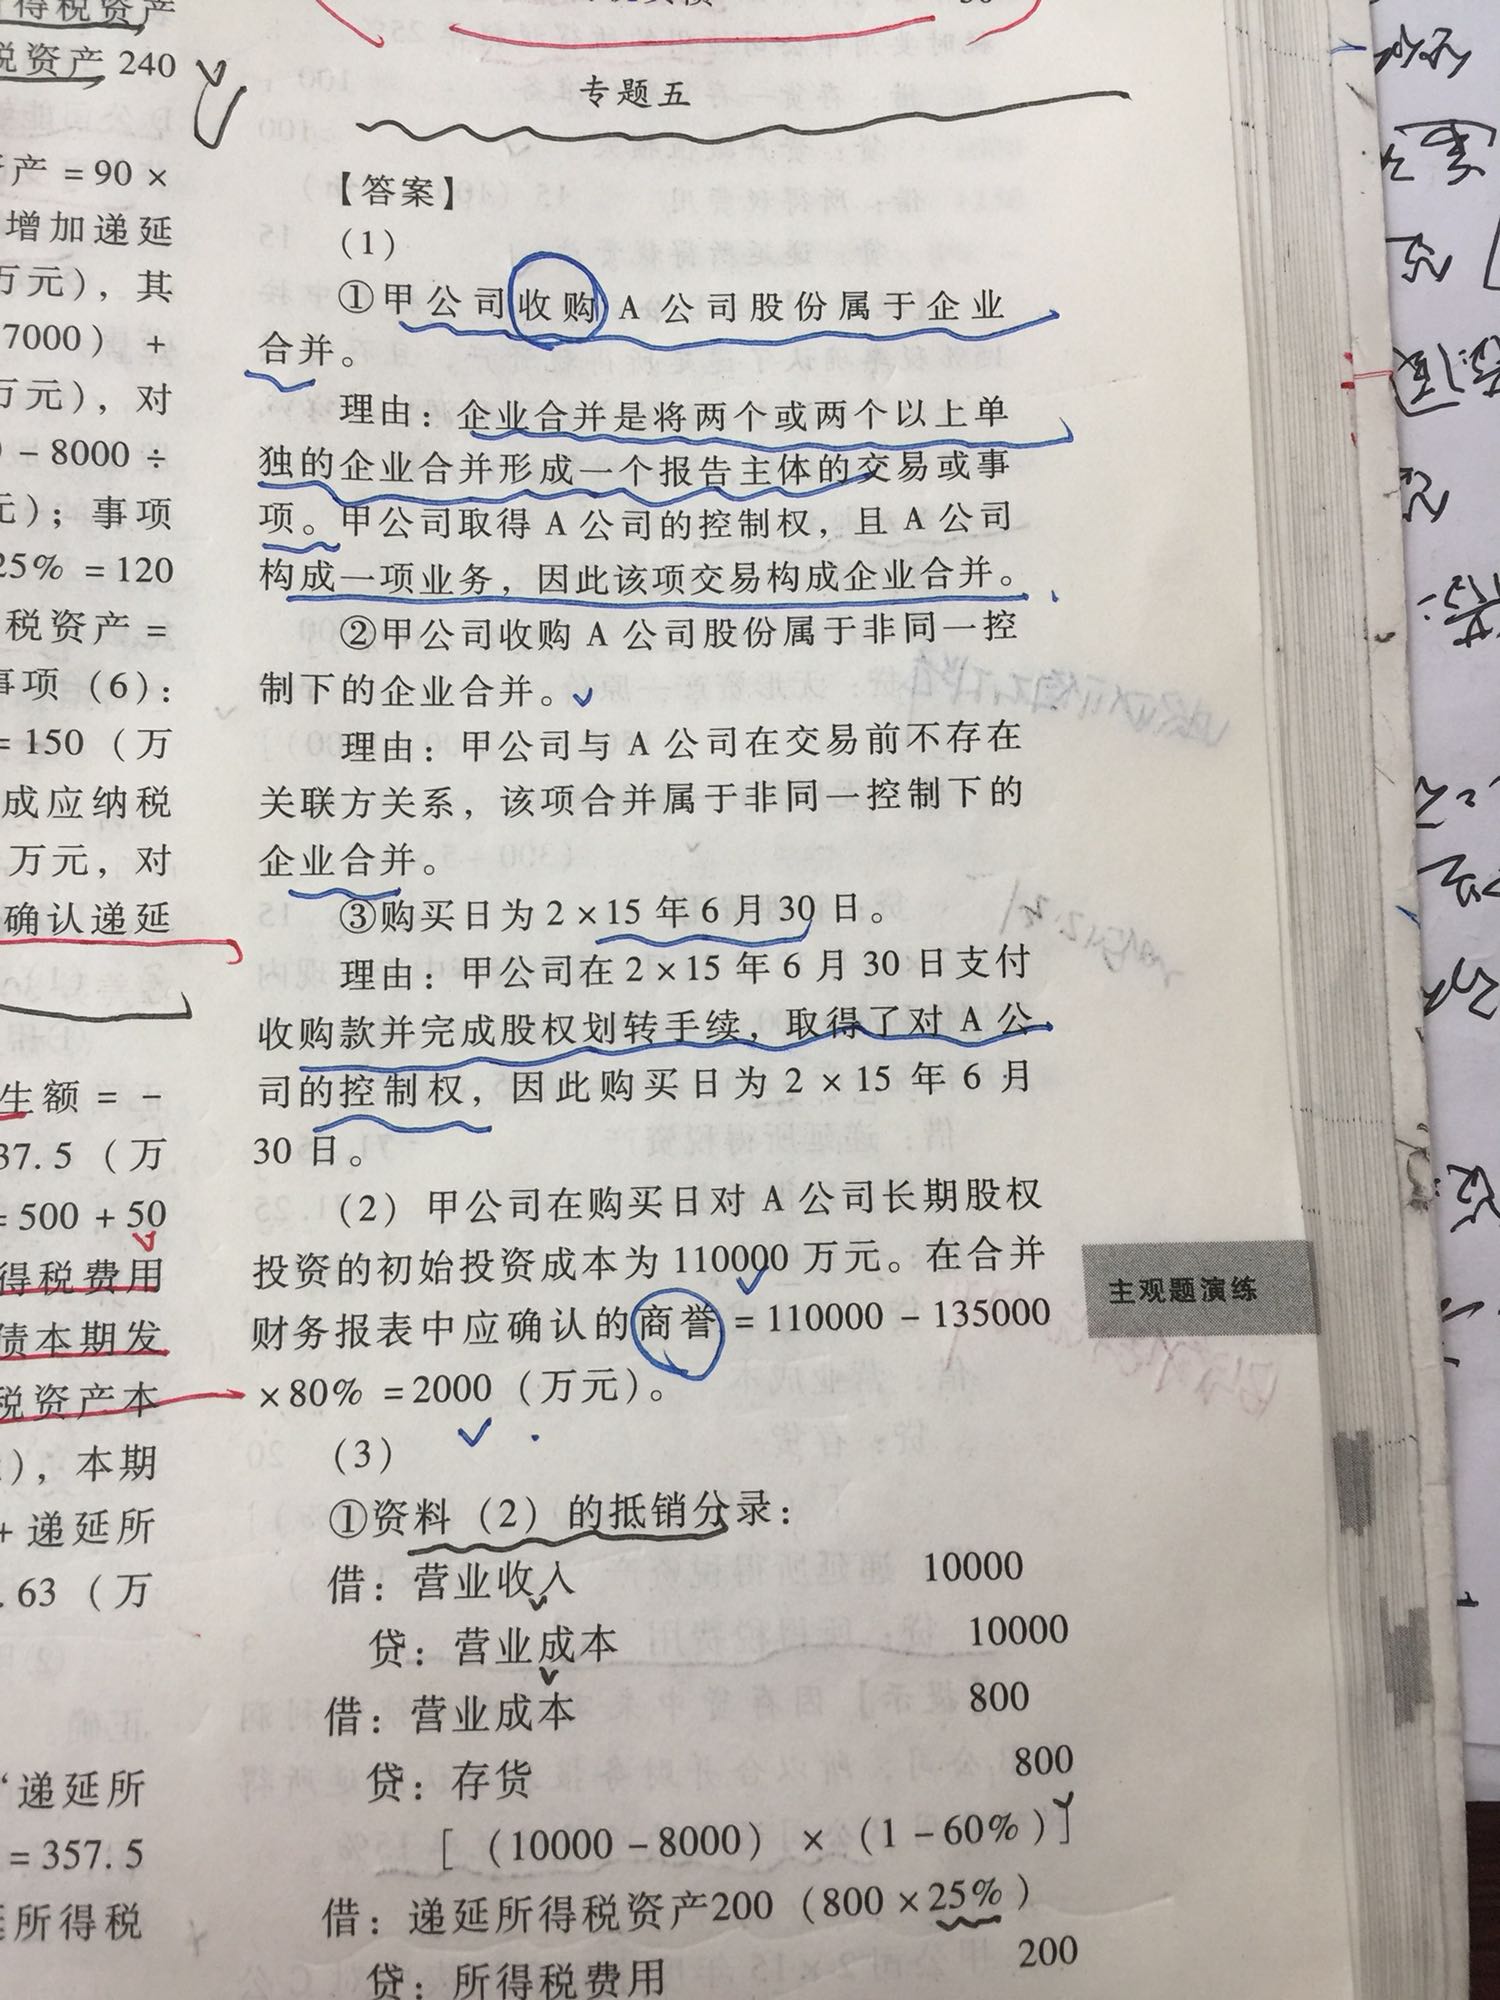 得税资产
税资产 240
产 = 90 ×
增加递延
万元），其
7000） +
万元），对
- 8000 ÷
元）；事项
25% = 120
税资产 =
事项（6）：
= 150（万
成应纳税
万元，对
确认递延
生额 = -
37.5（万
= 500 + 50
得税费用
债本期发
税资产本
），本期
+ 递延所
.63（万
“递延所
= 357.5
所得税
专题五
【答案】
（1）
①甲公司收购 A 公司股份属于企业
合并。
理由：企业合并是将两个或两个以上单
独的企业合并形成一个报告主体的交易或事
项。甲公司取得 A 公司的控制权，且 A 公司
构成一项业务，因此该项交易构成企业合并。
②甲公司收购 A 公司股份属于非同一控
制下的企业合并。
理由：甲公司与 A 公司在交易前不存在
关联方关系，该项合并属于非同一控制下的
企业合并。
③购买日为 2×15 年 6 月 30 日。
理由：甲公司在 2×15 年 6 月 30 日支付
收购款并完成股权划转手续，取得了对 A 公
司的控制权，因此购买日为 2×15 年 6 月
30 日。
（2）甲公司在购买日对 A 公司长期股权
投资的初始投资成本为 110000 万元。在合并
财务报表中应确认的商誉 = 110000 - 135000
×80% = 2000（万元）。
（3）
①资料（2）的抵销分录：
借：营业收入 10000
贷：营业成本 10000
借：营业成本 800
贷：存货 800
[（10000 - 8000）×（1 - 60%）]
借：递延所得税资产200（800×25%）
贷：所得税费用 200
主观题演练